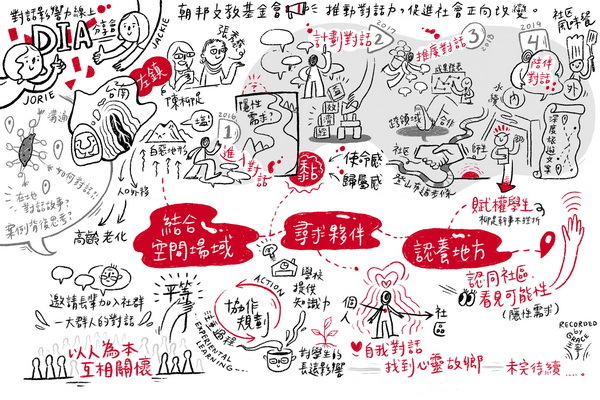 對話影響力線上
DIA
分享會
JACKIE
JORIE
朝邦文教基金會
推動對話力，促進社會正向改變。
左鎮
台南
陳柳足
隱性
需求?
2016
1
進入
對話
2017
計劃對話
2
2018
推展對話
3
2019
4
陪伴
對話
社區
風味餐
水
內
外
跨領域
合作
社區
師生
深度旅遊文案
溝通
如何對話?
在地
對話故事?
案例背後思考?
惡地形
人口外移
高齡老化
黏
使命感
歸屬感
賦權學生
結合
空間場域
尋求夥伴
認養地方
邀請長輩加入社群
一大群人的對話
平等
以人為本
互相關懷
ACTION
協作
規劃
注重過程
EXPERIENTIAL
LEARNING
學校
提供
知識力
對學生的
長遠影響
個人
社區
自我對話
找到心靈故鄉
未完待續……
認同社區
看見可能性
(隱性需求)
RECORDED
by
GRACE